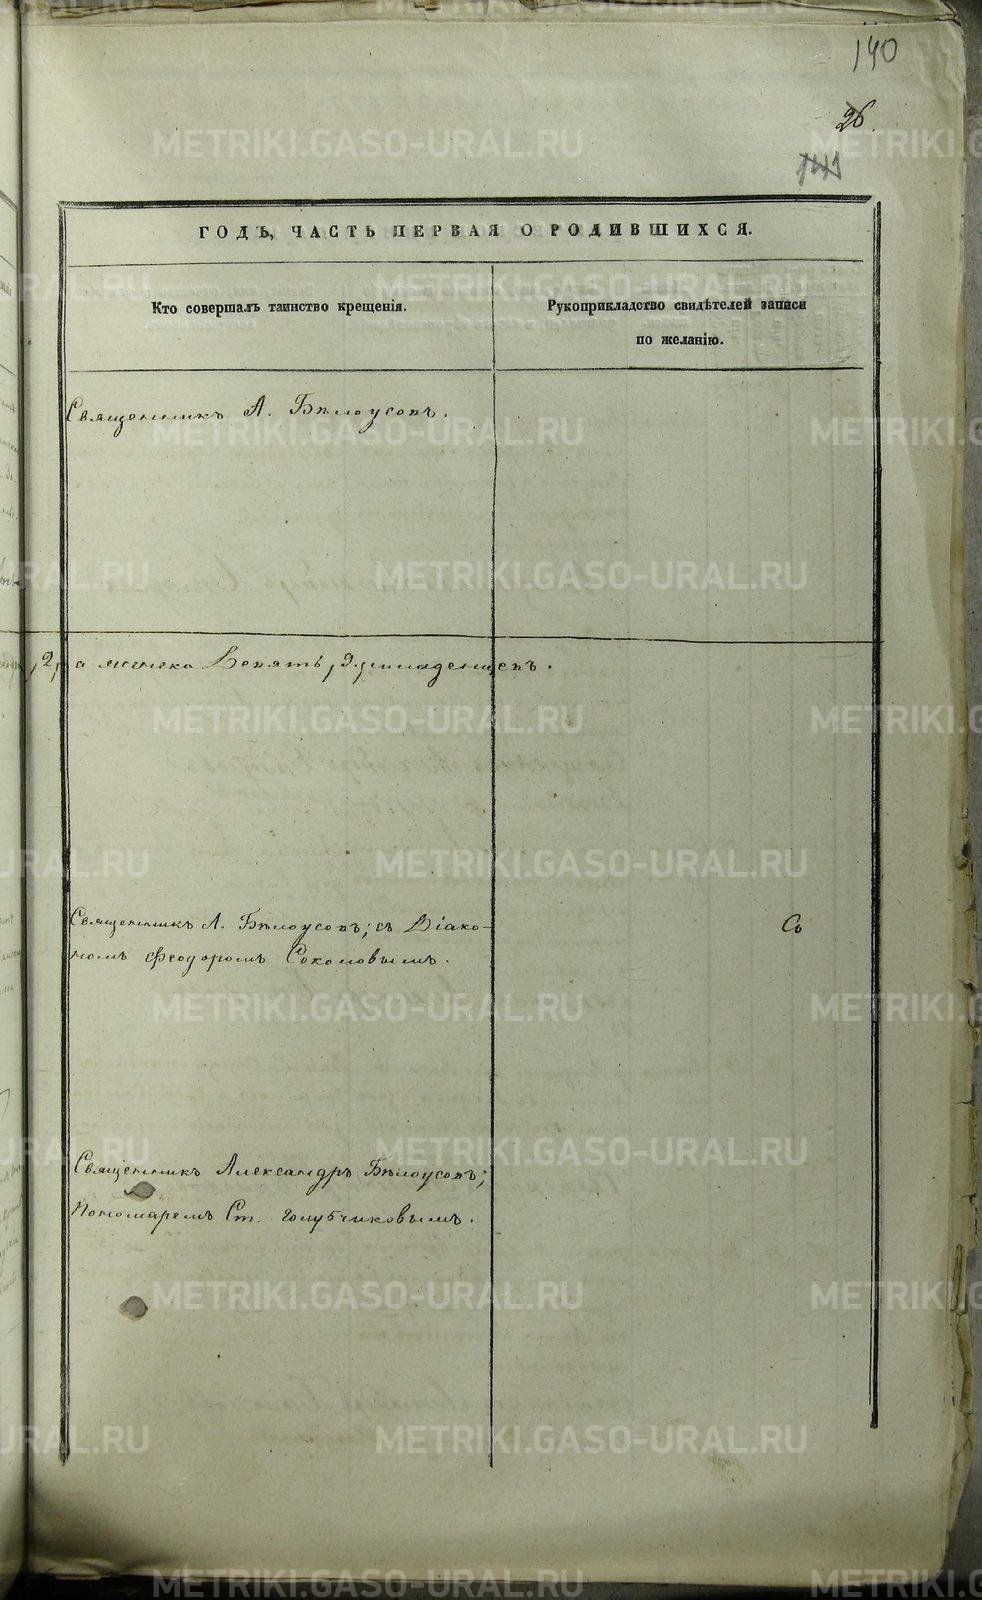 140
26.
141
ГОДЪ, ЧАСТЬ ПЕРВАЯ О РОДИВШИХСЯ.
Кто совершалъ таинство крещенія.
Рукоприкладство свидѣтелей записи
по желанію.
Священникъ А. Бѣлоусовъ.
,2, а женска Девять ,9, младенцевъ.
Священникъ А. Бѣлоусовъ; съ Діако-
номъ Феодоромъ Соколовымъ.
Со
Священникъ Александръ Бѣлоусовъ;
Пономаремъ Ст. Голубчиковымъ.
METRIKI.GASO-URAL.RU